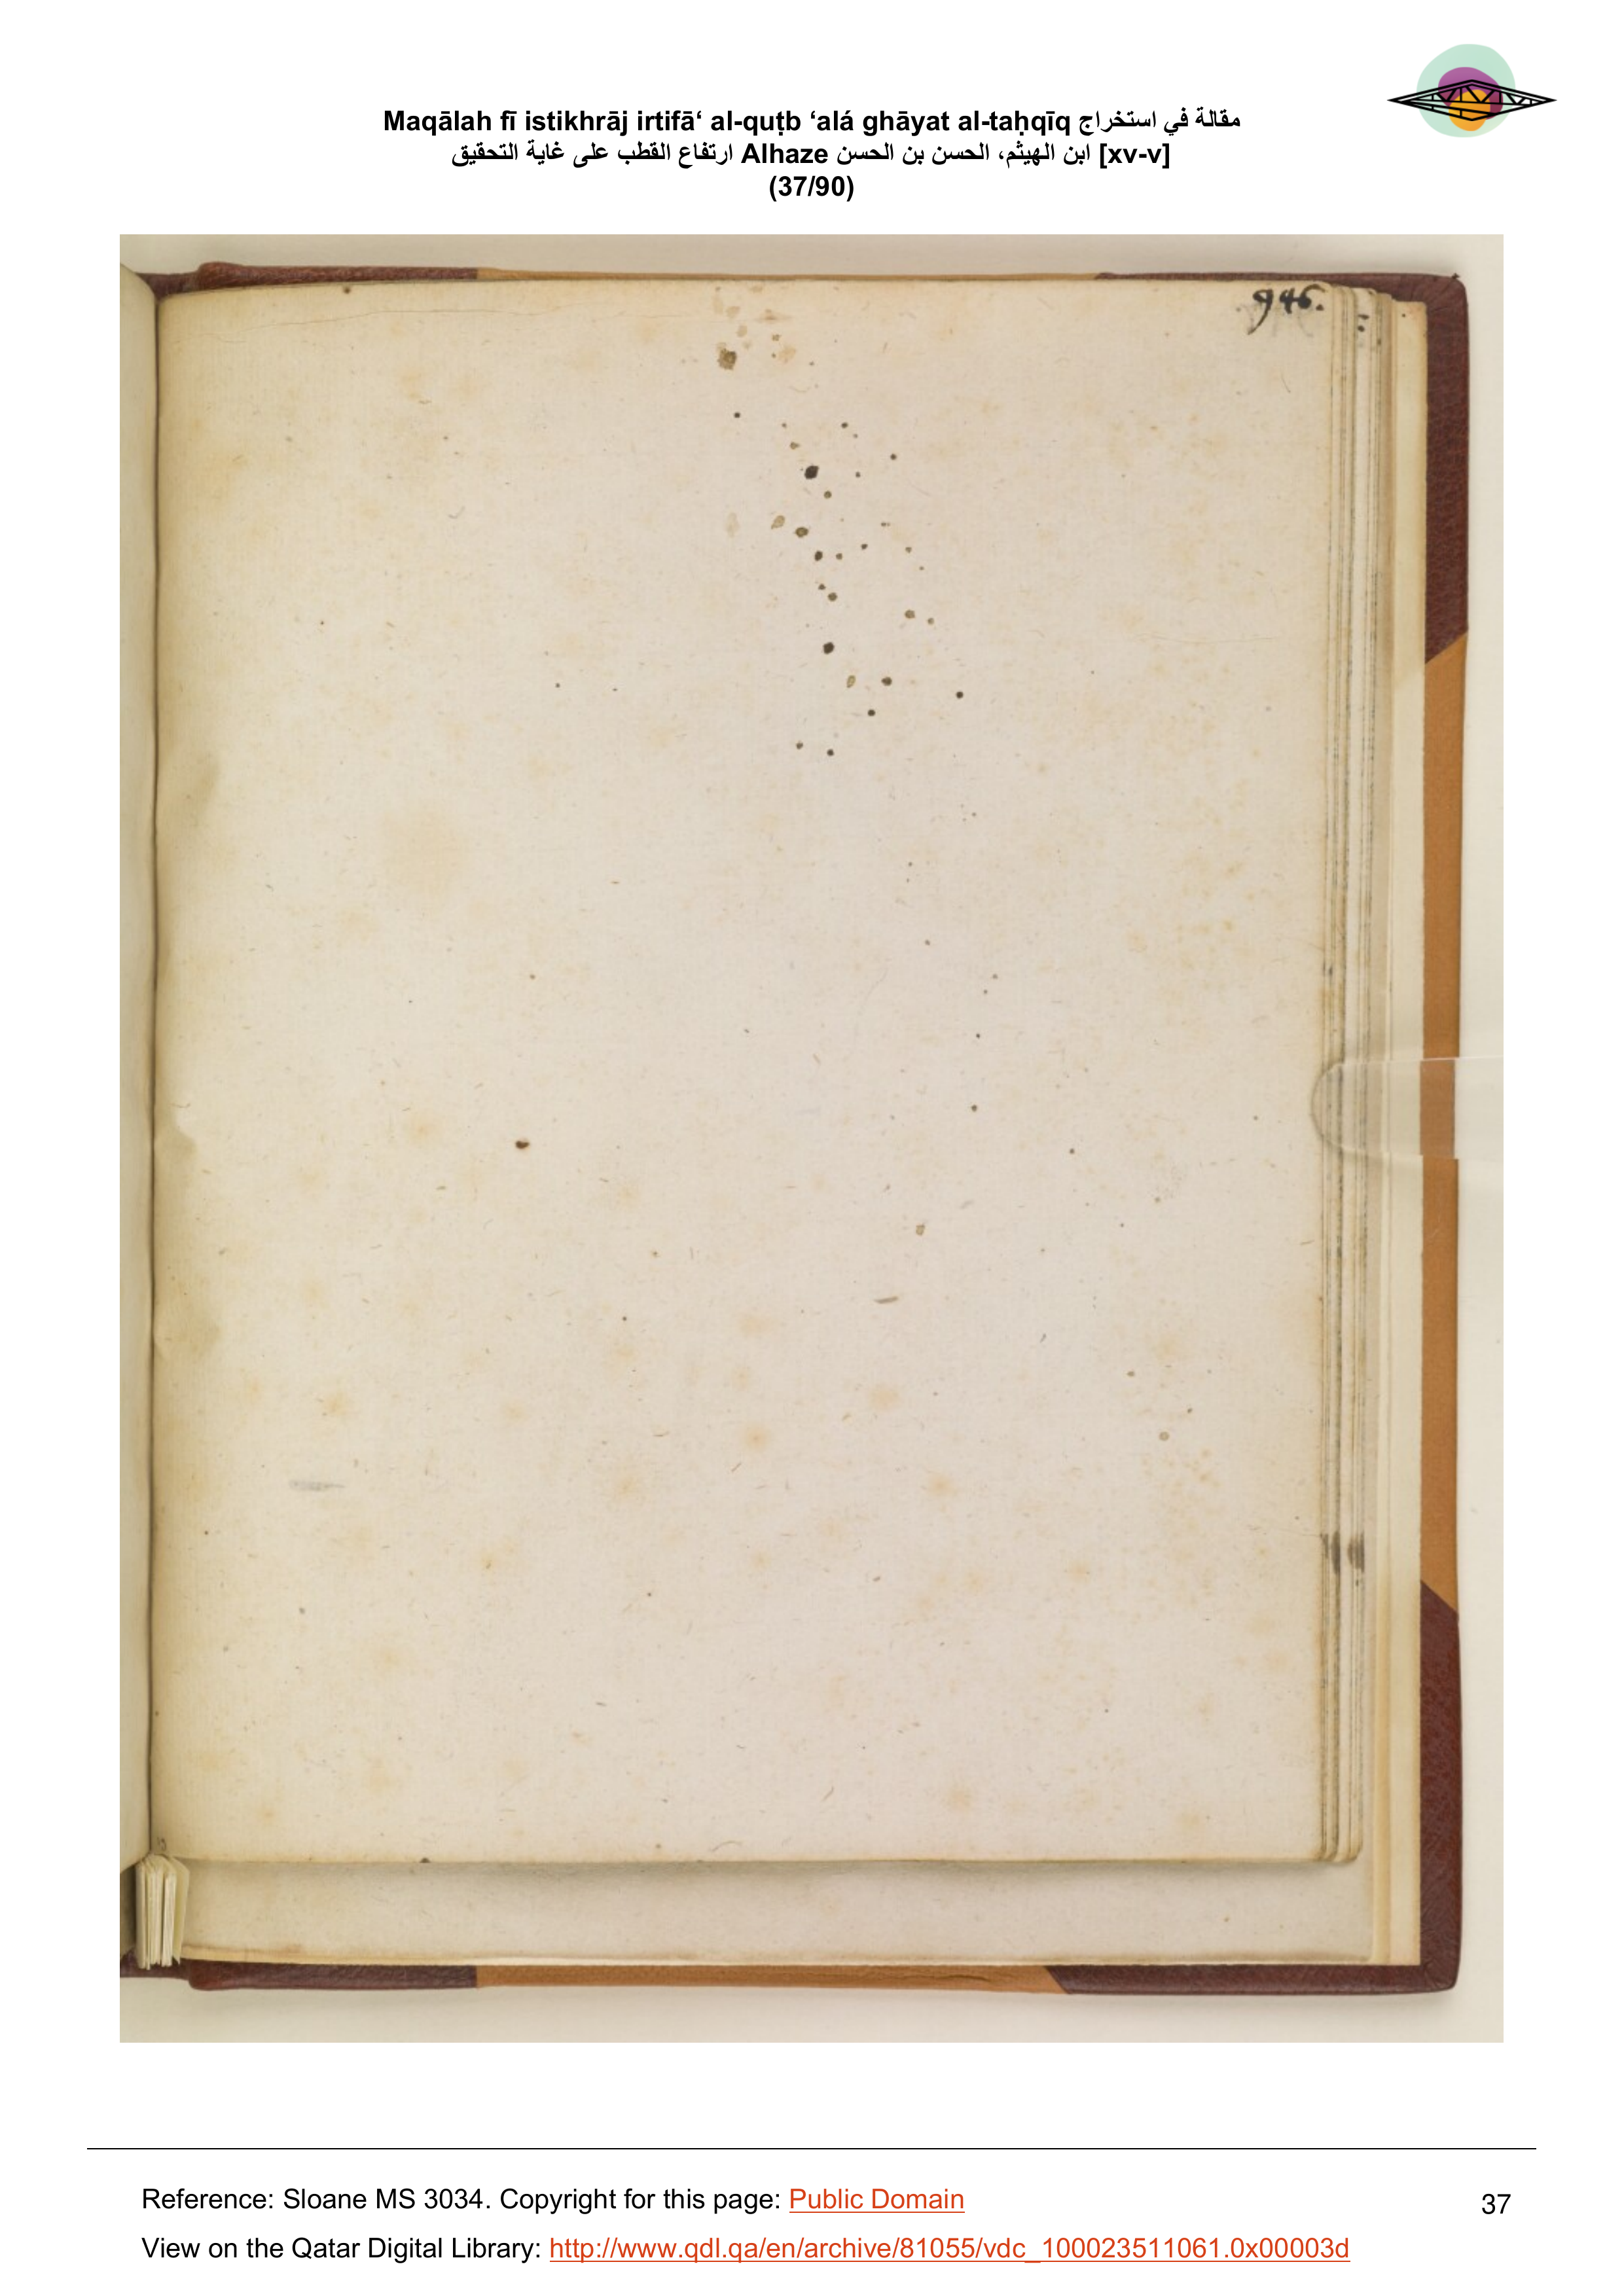 Maqālah fī istikhrāj irtifā‘ al-quṭb ‘alá ghāyat al-taḥqīq مقالة في استخراج
ارتفاع القطب على غاية التحقيق Alhaze ابن الهيثم، الحسن بن الحسن [xv-v]
(37/90)
946.
Reference: Sloane MS 3034. Copyright for this page: Public Domain
37
View on the Qatar Digital Library: http://www.qdl.qa/en/archive/81055/vdc_100023511061.0x00003d